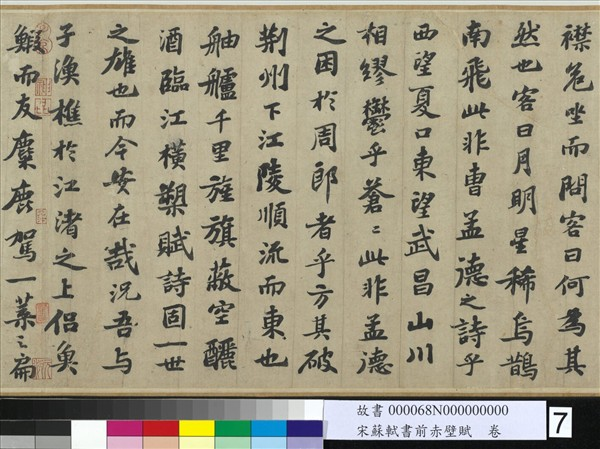 襟危坐而問客曰何為其
然也客曰月明星稀烏鵲
南飛此非曹孟德之詩乎
西望夏口東望武昌山川
相繆鬱乎蒼〻此非孟德
之困於周郎者乎方其破
荊州下江陵順流而東也
舳艫千里旌旗蔽空釃
酒臨江橫槊賦詩固一世
之雄也而今安在哉況吾与
子漁樵於江渚之上侶魚
鰕而友麋鹿駕一葉之扁
故書 000068N000000000
宋蘇軾書前赤壁賦 卷
7